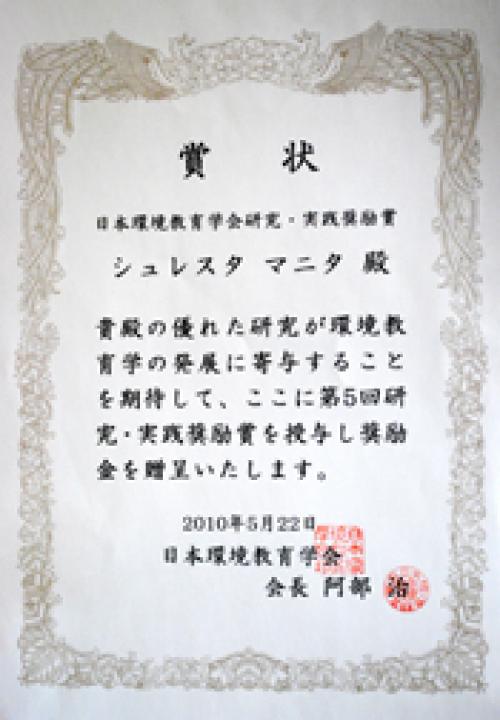 賞状
日本環境教育学会研究・実践奨励賞
シュレスタ マニタ 殿
貴殿の優れた研究が環境教
育学の発展に寄与すること
を期待して、ここに第5回研
究・実践奨励賞を授与し奨励
金を贈呈いたします。
2010年5月22日
日本環境教育学会
会長 阿部 治